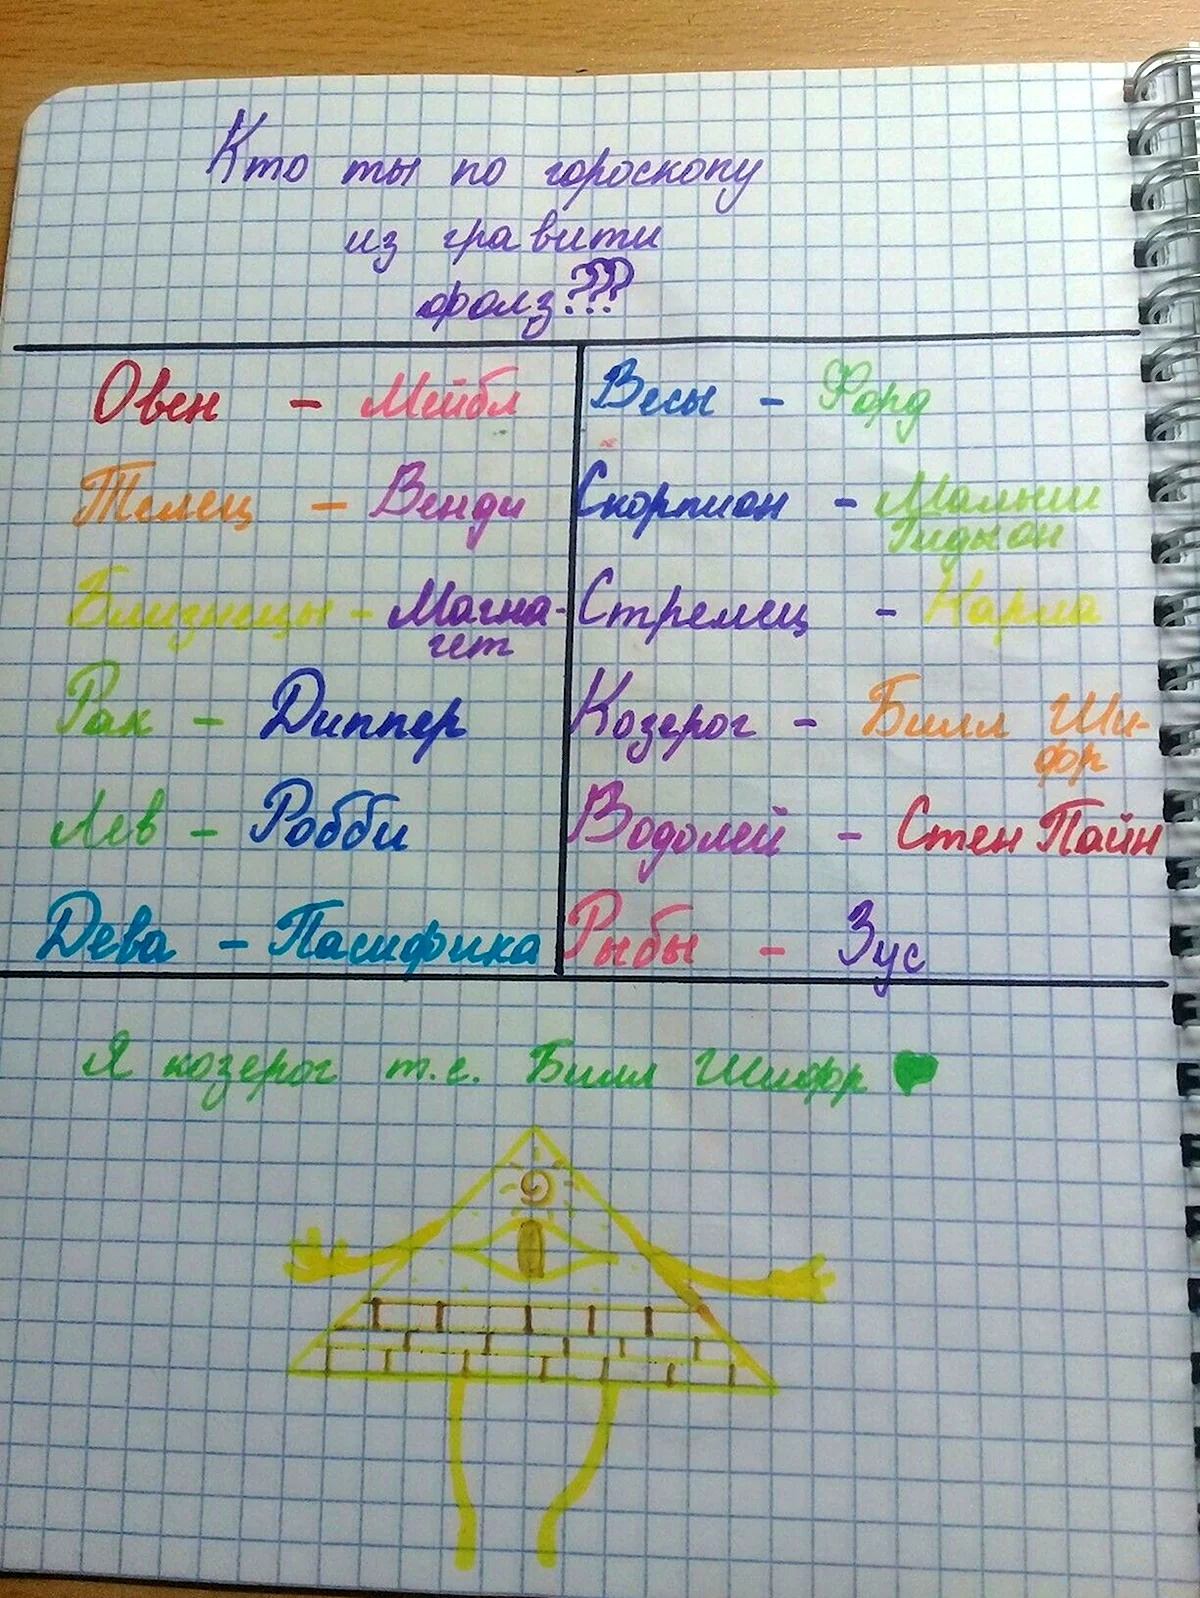 Кто ты по гороскопу
из гравити
фолз???
Овен - Мейбл
Телец - Венди
Близнецы - Магна-
гет
Рак - Диппер
Лев - Робби
Дева - Пасифика
Весы - Форд
Скорпион - Малыш
Гидеон
Стрелец - Карла
Козерог - Билл Ши-
фр
Водолей - Стен Пайн
Рыбы - Зус
Я козерог т.е. Билл Шифр